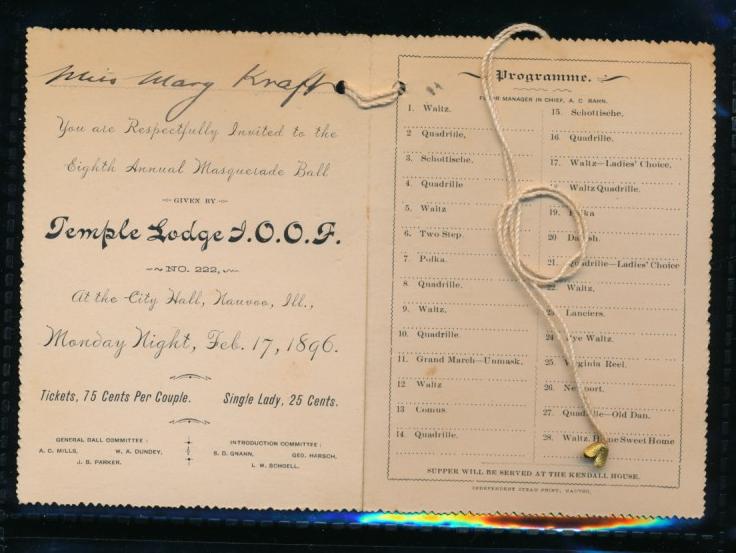 Miss Mary Kraft
You are Respectfully Invited to the
Eighth Annual Masquerade Ball
GIVEN BY
Temple Lodge I.O.O.F.
NO. 222,
At the City Hall, Nauvoo, Ill.,
Monday Night, Feb. 17, 1896.
Tickets, 75 Cents Per Couple. Single Lady, 25 Cents.
GENERAL BALL COMMITTEE:
A. C. MILLS, W. A. DUNDEY,
J. B. PARKER.
INTRODUCTION COMMITTEE:
S. D. GNANN, GEO. HARSCH,
L. W. SCHOELL.
Programme.
MANAGER IN CHIEF, A. C. BAHN.
1. Waltz.
2 Quadrille,
3. Schottische,
4. Quadrille
5. Waltz
6. Two Step.
7. Polka.
8. Quadrille.
9. Waltz,
10. Quadrille
11. Grand March—Unmask.
12 Waltz
13 Comus.
14 Quadrille.
15. Schottische,
16. Quadrille.
17. Waltz—Ladies' Choice.
Waltz Quadrille.
19.
20
21. Quadrille—Ladies' Choice
22. Waltz,
23. Lanciers.
24 Waltz.
25. Virginia Reel.
26. Newport.
27. Quadrille—Old Dan.
28. Waltz, Home Sweet Home
SUPPER WILL BE SERVED AT THE KENDALL HOUSE.
INDEPENDENT STEAM PRINT, NAUVOO.